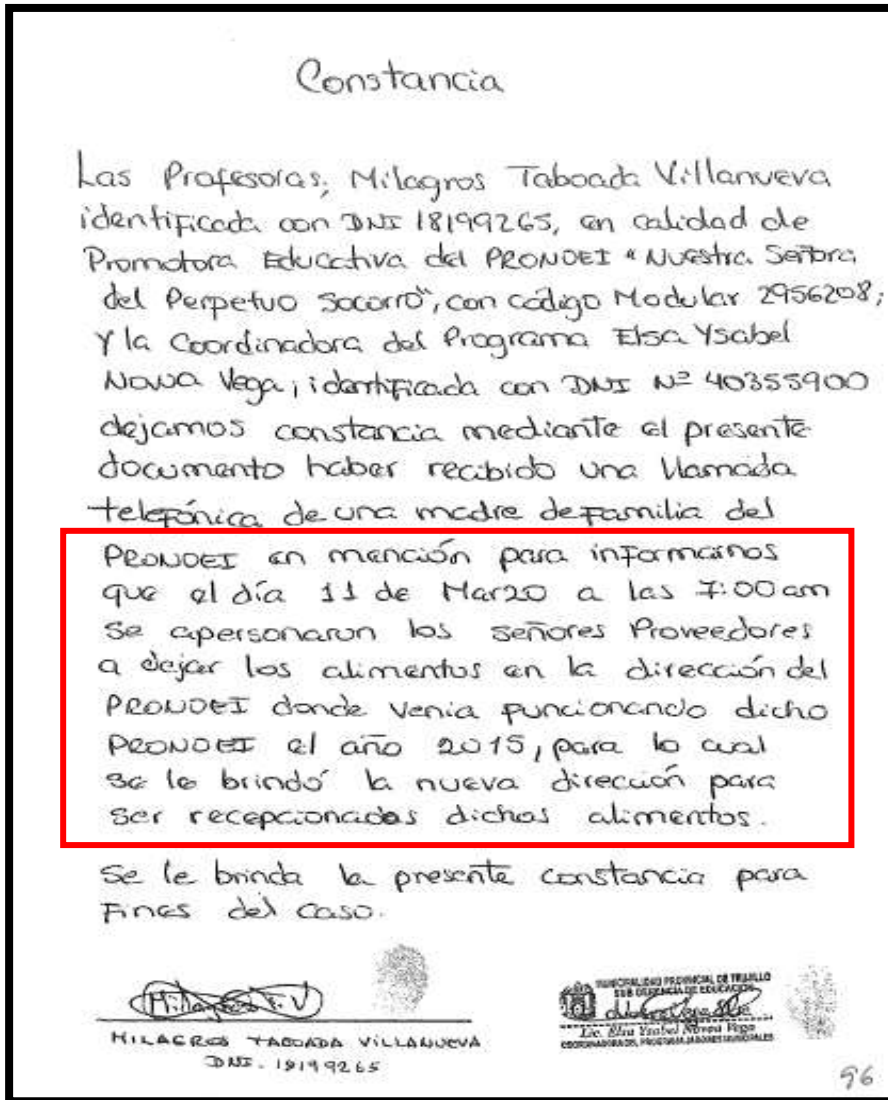 Constancia
Las Profesoras; Milagros Taboada Villanueva
identificada con DNI 18199265, en calidad de
Promotora Educativa del PRONOEI "Nuestra Señora
del Perpetuo Socorro", con código Modular 2956208;
y la Coordinadora del Programa Elsa Ysabel
Novoa Vega; identificada con DNI Nº 40355900
dejamos constancia mediante el presente
documento haber recibido una llamada
telefónica de una madre de familia del
PRONOEI en mención para informarnos
que el día 11 de Marzo a las 7:00am
se apersonaron los señores Proveedores
a dejar los alimentos en la dirección del
PRONOEI donde venia funcionando dicho
PRONOEI el año 2015, para lo cual
se le brindó la nueva dirección para
ser recepcionados dichos alimentos.
Se le brinda la presente constancia para
Fines del caso.
Milagros T.V
MILAGROS TABOADA VILLANUEVA
DNI. 18199265
MUNICIPALIDAD PROVINCIAL DE TRUJILLO
SUB GERENCIA DE EDUCACION
Lic. Elsa Ysabel Novoa Vega
COORDINADORA DEL PROGRAMA JARDINES MUNICIPALES
96